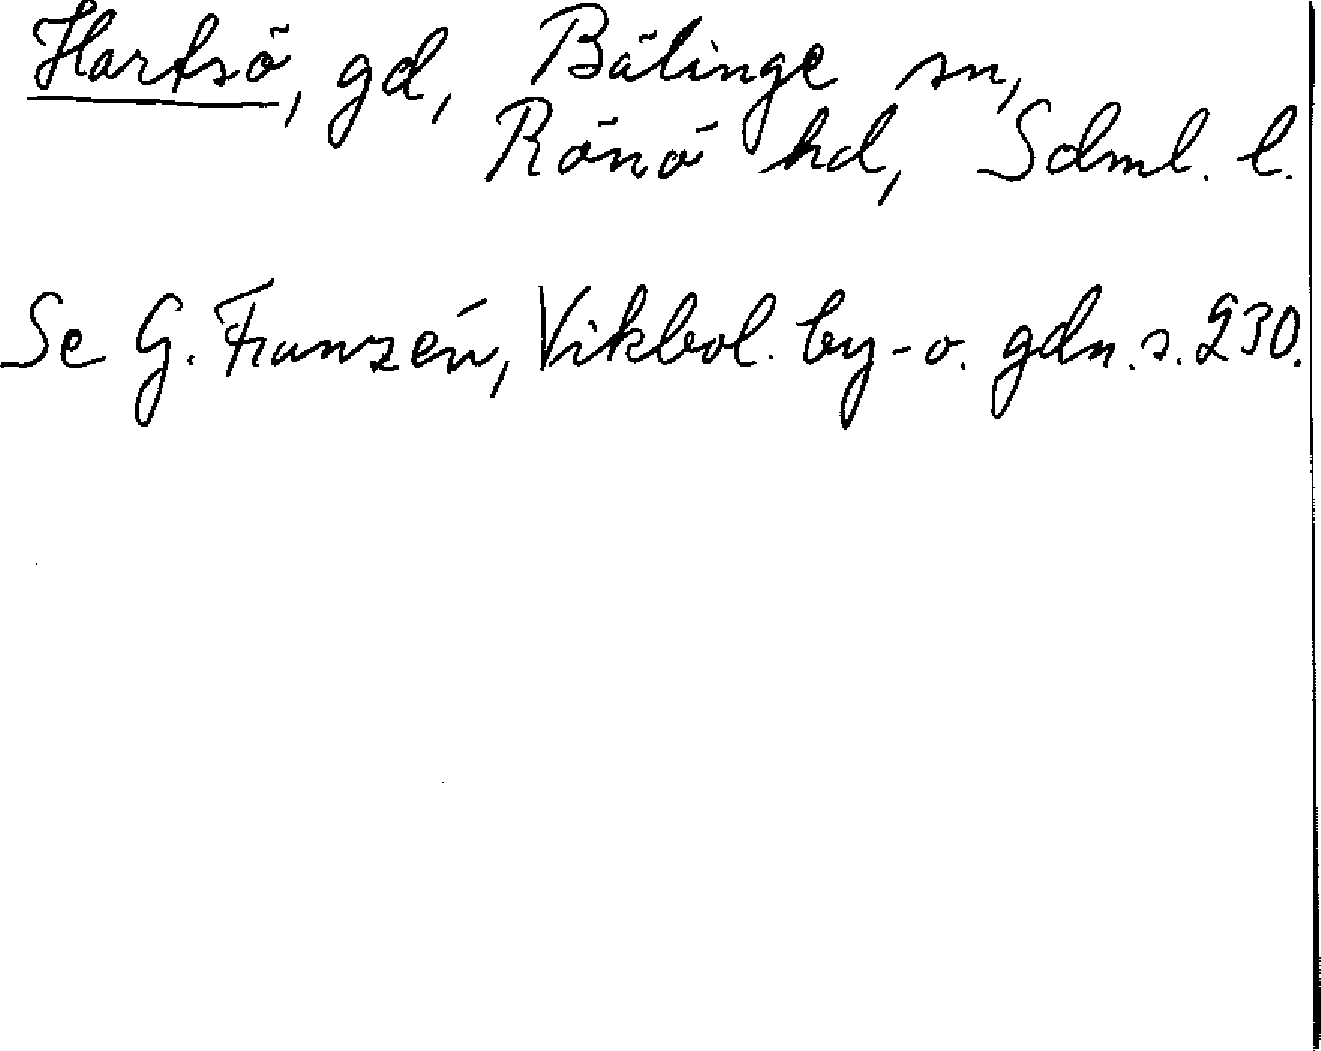 Hartsö, gd, Bälinge sn,
Rönö hd, Sdml. l.
Se G. Franzén, Vikbol. by- o. gdn. s. 230.